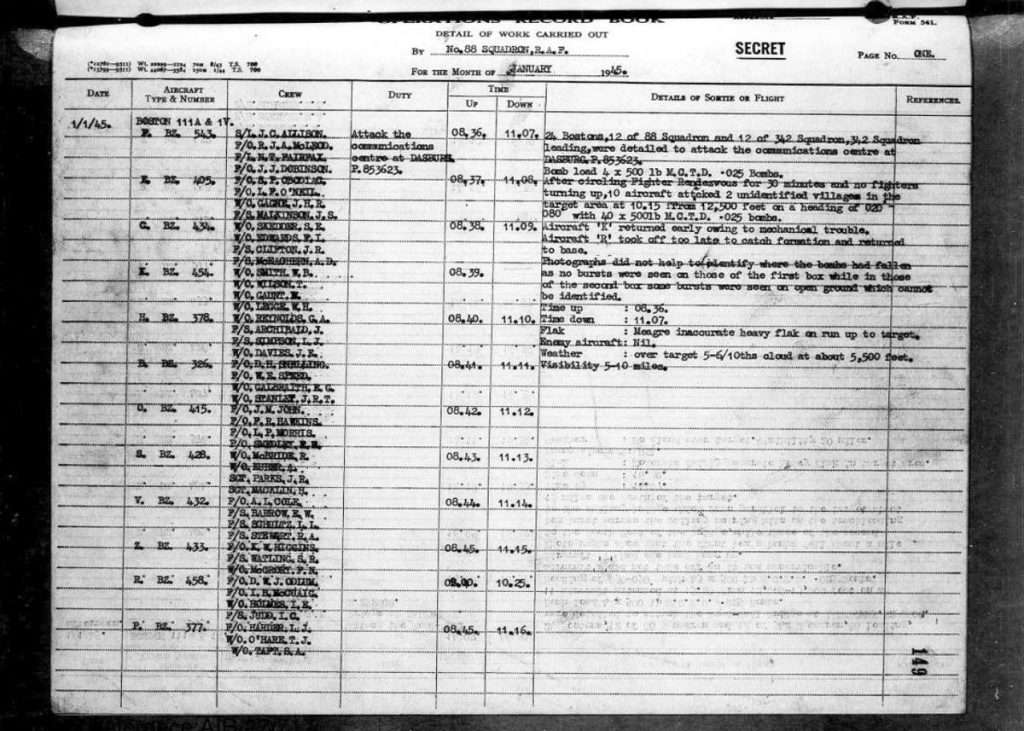 OPERATIONS RECORD BOOK
R.A.F. FORM 541.
DETAIL OF WORK CARRIED OUT
By No.88 SQUADRON,R.A.F.
SECRET
PAGE No. ONE.
FOR THE MONTH OF JANUARY 1945.
DATE
AIRCRAFT TYPE & NUMBER
CREW
DUTY
TIME
UP
DOWN
DETAILS OF SORTIE OR FLIGHT
REFERENCES.
1/1/45. BOSTON 111A & 1V.
F. BZ. 543. S/L.J.C.ALLISON. Attack the 08,36, 11.07. 24 Bostons,12 of 88 Squadron and 12 of 342 Squadron,342 Squadron
F/O.R.J.A.McLEOD. communications leading,were detailed to attack the communications centre at
F/L.N.T.FAIRFAX. centre at DASBURG, DASBURG,P.853623.
F/O.J.J.DOBINSON. P.853623. Bomb load 4 x 500 lb M.C.T.D. .025 Bombs.
BZ. 405. 08,37, 11,08, After circling Fighter Rendezvous for 30 minutes and no fighters
F/O.L.F.O'NEIL. turning up,10 aircraft attcked 2 unidentified villages in the
W/O.GAGNE,J.H.R. target area at 10.15 from 12,500 feet on a heading of 020°
F/S.MALKINSON,J.S. 080° with 40 x 500lb M.C.T.D. .025 bombs.
G. BZ. 434. 08.38. 11.09. Aircraft 'K' returned early owing to mechanical trouble.
W/O.EDWARDS,F.I. Aircraft 'R' took off too late to catch formation and returned
F/S.CLIFTON,J.R. to base.
Photographs did not help to identify where the bombs had fallen
K. BZ. 454. W/O.SMITH.W.B. 08.39. as no bursts were seen on those of the first box while in those
W/O.WILSON,T. of the second box some bursts were seen on open ground which cannot
be identified.
W/O.LEGGE,W.H. Time up : 08.36.
H. BZ. 378. W/O.REYNOLDS,G.A. 08.40. 11.10. Time down : 11.07.
F/S.ARCHIBALD,J. Flak : Meagre inaccurate heavy flak on run up to target.
F/S.SIMPSON,L.J. Enemy aircraft: Nil.
W/O.DAVIES,J.E. Weather : over target 5-6/10ths cloud at about 5,500 feet.
B. BZ. 326. 08.41. 11.11. Visibility 5-10 miles.
F/O.W.E.SPEED.
W/O.GALBRAITH,K.G.
W/O.STANLEY,J.R.T.
O. BZ. 415. F/O.J.M.JOHN. 08.42. 11.12.
F/O.F.R.HAWKINS.
F/O.L.P.MORRIS.
S. BZ. 428. W/O.McBRIDE,R. 08.43. 11.13.
SGT.PARKS,J.R.
SGT.MACKLIN,H.
V. BZ. 432. F/O.A.L.COLE. 08.44. 11.14.
F/S.BARROW,E.W.
F/S.SCHULTZ,L.L.
F/S.STEWART,R.A.
Z. BZ. 433. F/O.K.W.HIGGINS. 08.45. 11.15.
F/S.WATLING,S.R.
R. BZ. 458. 10.25.
W/O.HOLMES,I.E.
F/S.JUDD,I.G.
P. BZ. 377. F/O.HARDER,L.J. 08.45. 11.16.
W/O.O'HARE,T.J.
W/O.TAFT,S.A.
149